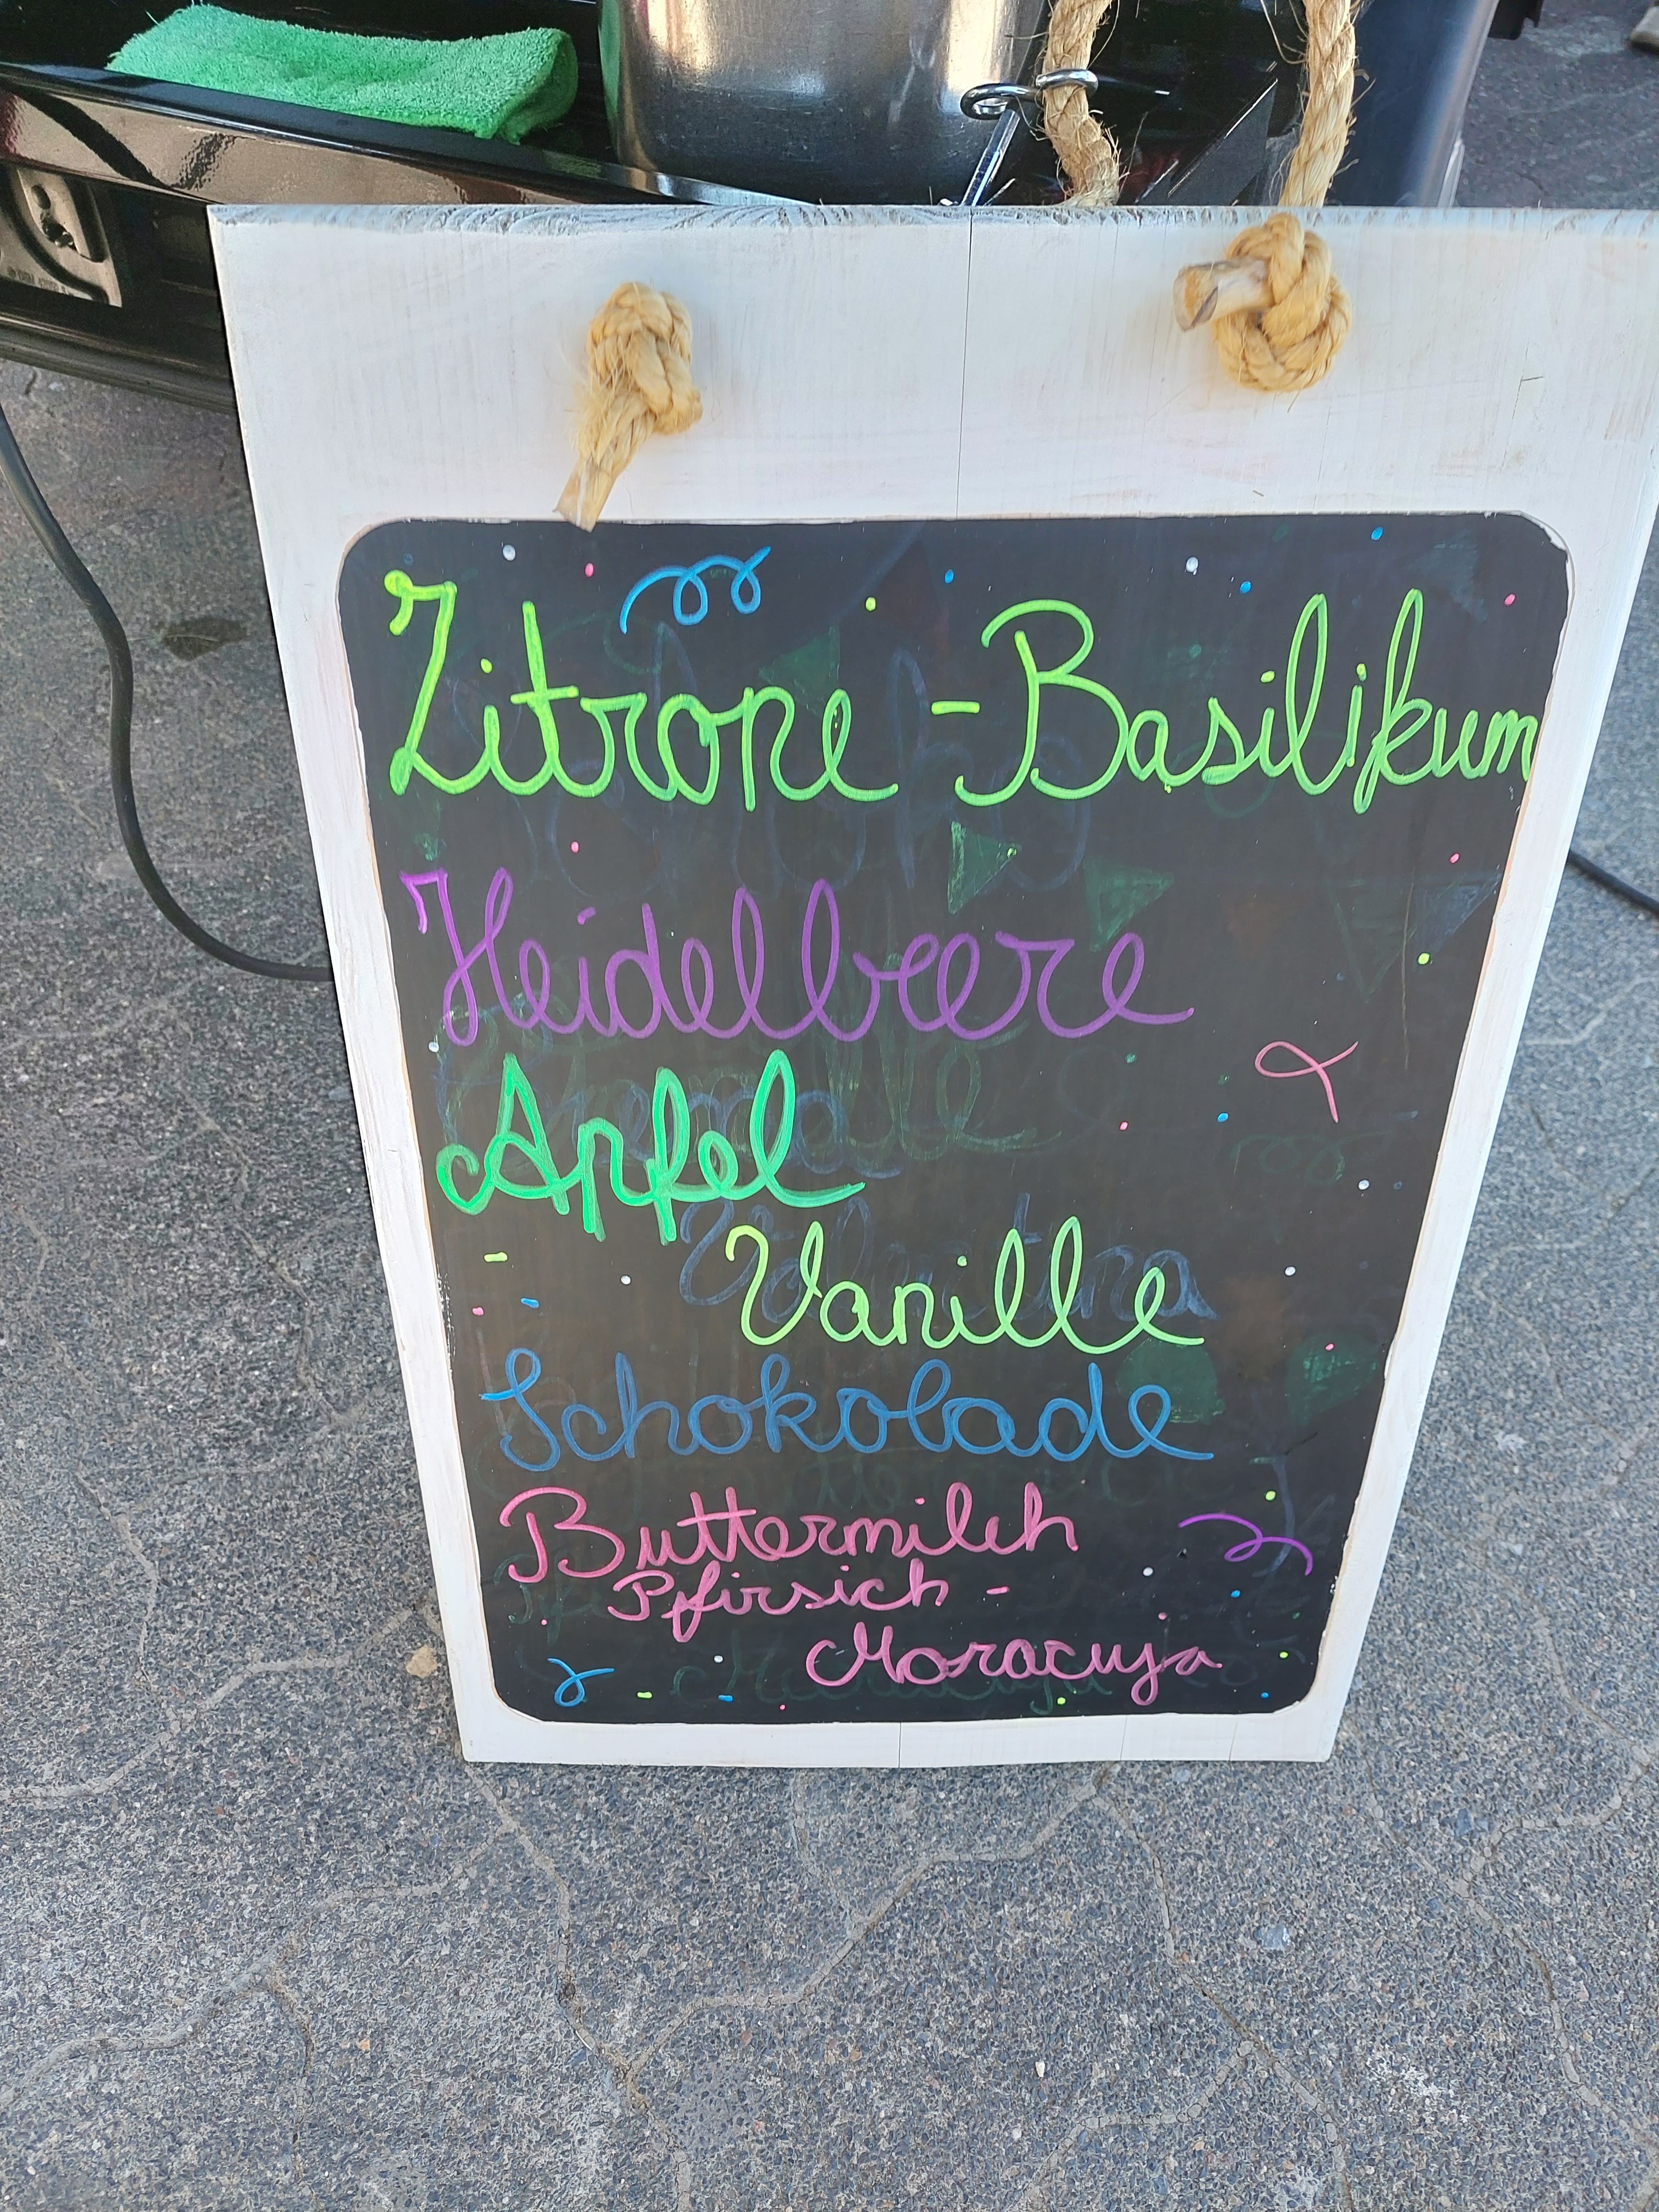 Zitrone-Basilikum
Heidelbeere
Apfel
Vanille
Schokolade
Buttermilch
Pfirsich-
Maracuja